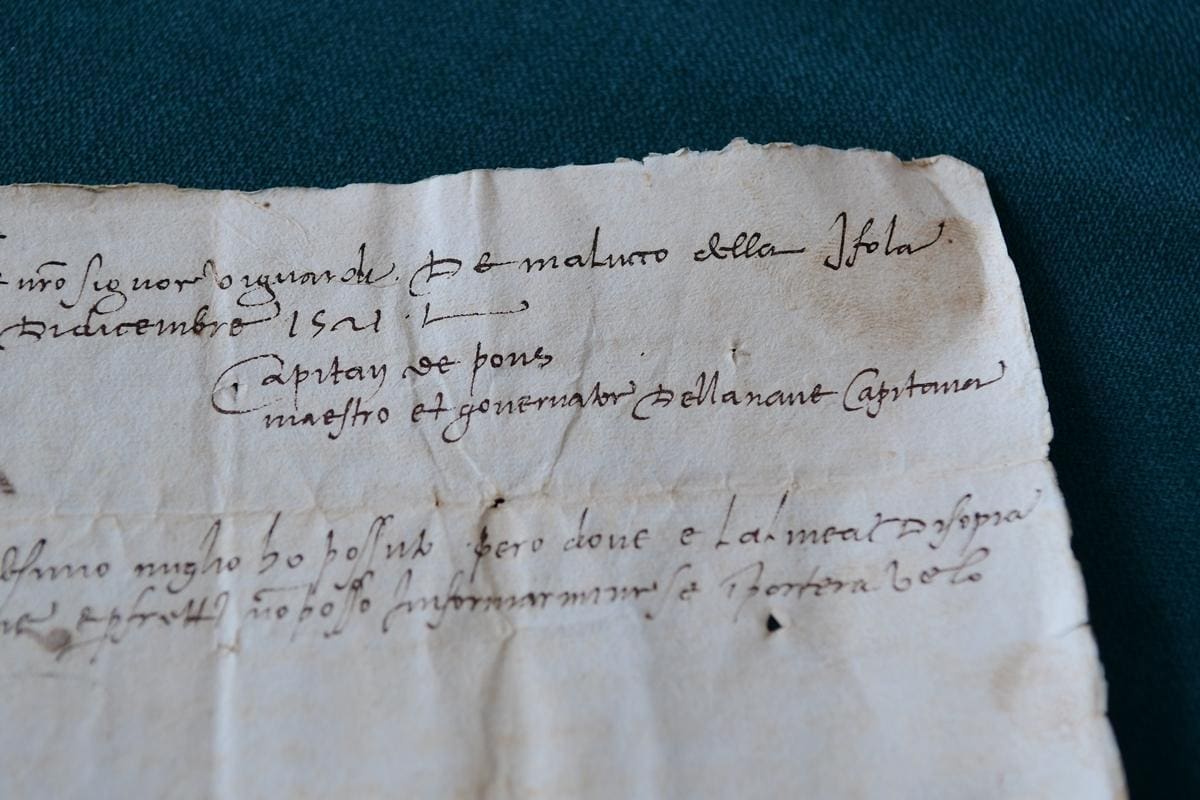 nr̃o signor vi guardi. De malucco della Isola
Di dicembre 1521
Capitan de pons
maestro et governator Della nave Capitana
meglio ho possuto pero dove e La linea Disopra
nõ posso Informarmi se i portera Velo